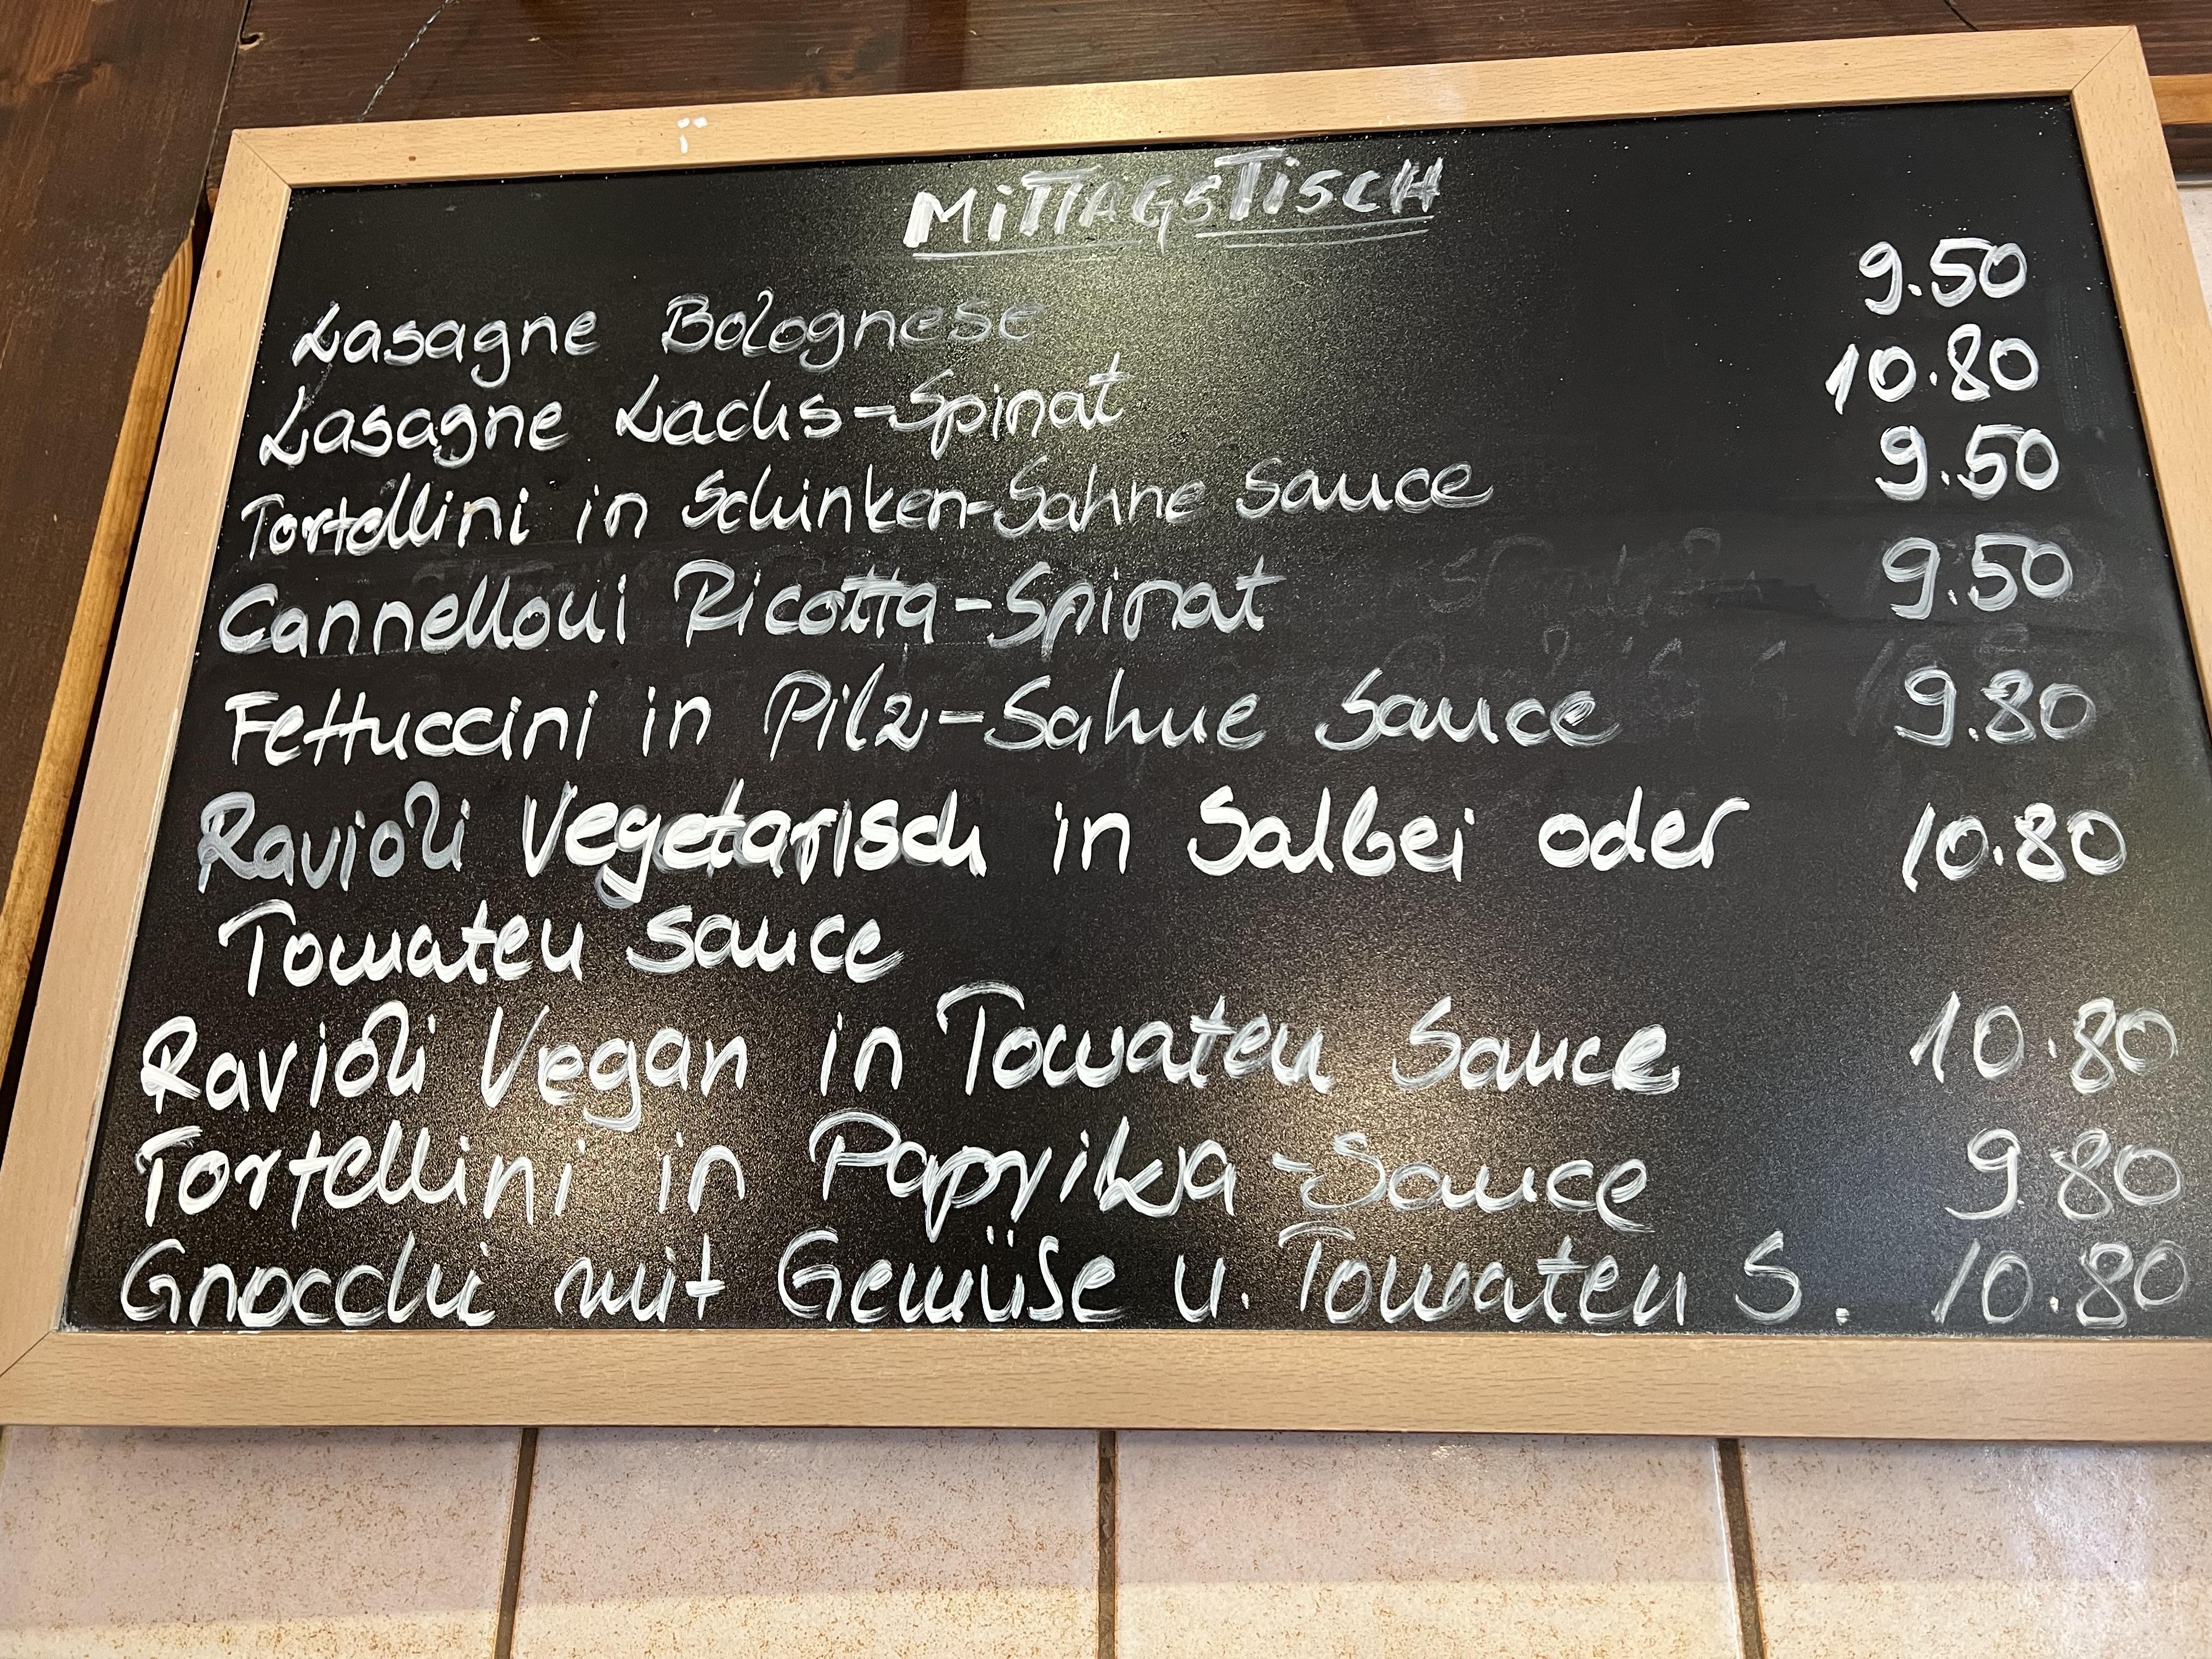 MiTTAGSTiSCH
Lasagne Bolognese 9.50
Lasagne Lachs-Spinat 10.80
Tortellini in Schinken-Sahne Sauce 9.50
Cannelloni Ricotta-Spinat 9.50
Fettuccini in Pilz-Sahne Sauce 9.80
Ravioli Vegetarisch in Salbei oder 10.80
Tomaten Sauce
Ravioli Vegan in Tomaten Sauce 10.80
Tortellini in Paprika-Sauce 9.80
Gnocchi mit Gemüse u. Tomaten S. 10.80